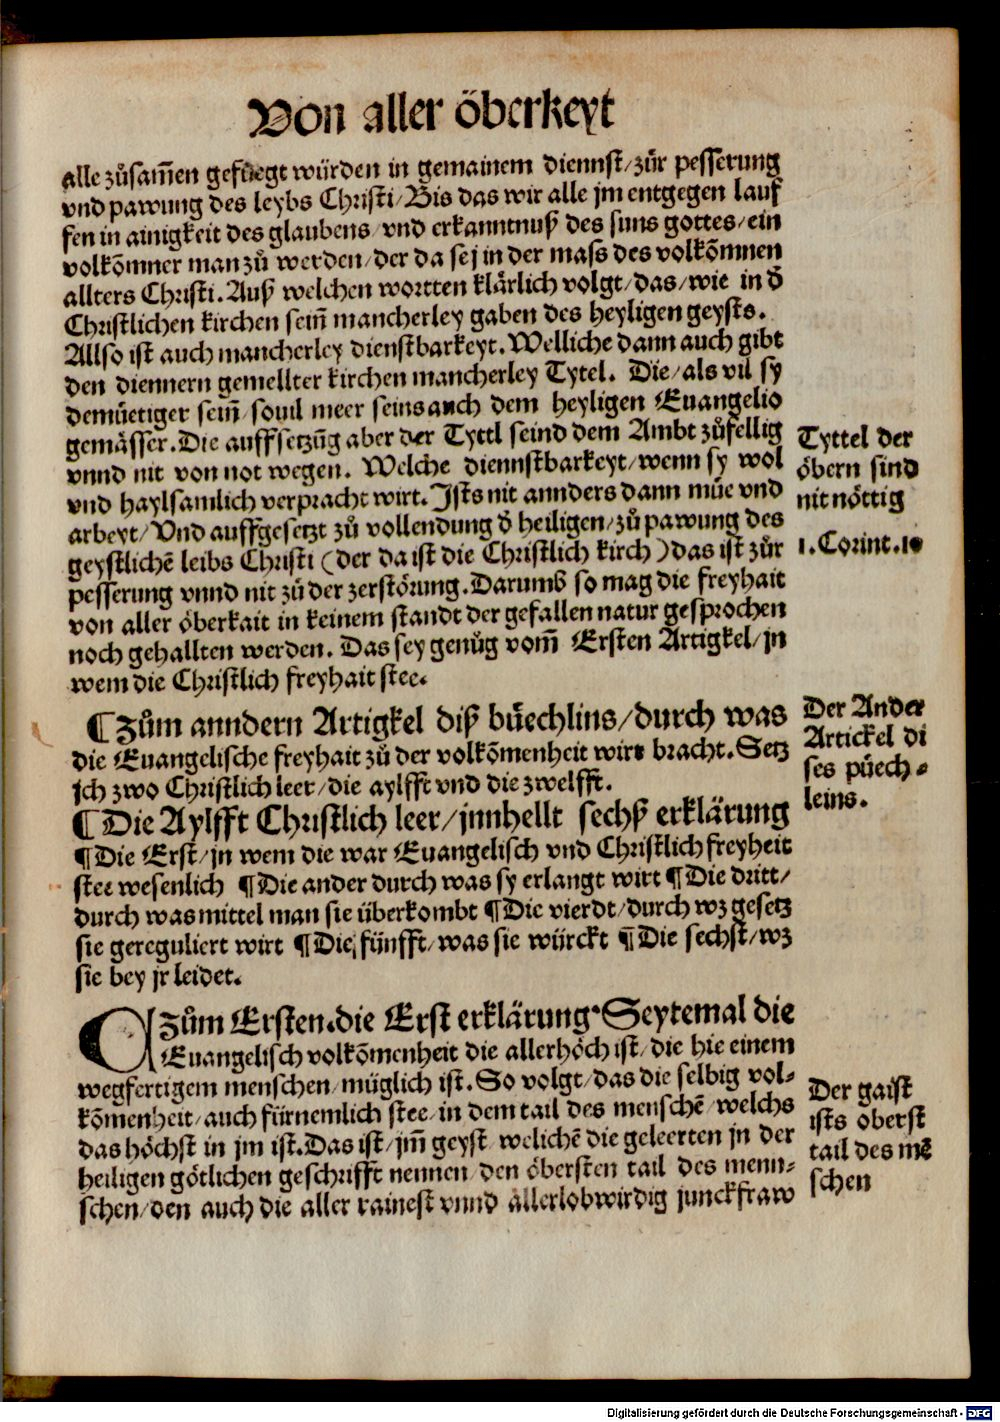 Von aller öberkeyt
alle zůsam̃en gefuegt würden in gemainem diennst/zůr pesserung
vnd pawung des leybs Christi/Bis das wir alle jm entgegen lauf
fen in ainigkeit des glaubens/vnd erkanntnuß des suns gottes/ein
volkõmner man zů werden/der da sej in der mass des volkõmnen
allters Christi. Auß welchen wortten klärlich volgt/das/wie in d̃
Christlichen kirchen sein̄ mancherley gaben des heyligen geysts.
Allso ist auch mancherley dienstbarkeyt. Welliche dann auch gibt
den diennern gemellter kirchen mancherley Tytel. Die/als vil sy
demüetiger sein̄/souil meer seins auch dem heyligen Euangelio
gemässer. Die auffsetzūg aber der Tyttl seind dem Ambt zůfellig
vnnd nit von not wegen. Welche diennstbarkeyt/wenn sy wol
vnd haylsamlich verpracht wirt. Ists nit annders dann müe vnd
arbeyt/Vnd auffgesetzt zů vollendung d̃ heiligen/zů pawung des
geystlichē leibs Christi (der da ist die Christlich kirch) das ist zůr
pesserung vnnd nit zů der zerstörung. Darumb so mag die freyhait
von aller öberkait in keinem standt der gefallen natur gesprochen
noch gehallten werden. Das sey genůg vom̄ Ersten Artigkel/jn
wem die Christlich freyhait stee.
Tyttel der
öbern sind
nit nöttig
1. Corint. 10
¶ Zům anndern Artigkel diß büechlins/durch was
die Euangelische freyhait zů der volkõmenheit wirt bracht. Setz
jch zwo Christlich leer/die aylfft vnd die zwelfft.
Der Ander
Artickel di
ses püech-
leins.
¶ Die Aylfft Christlich leer/jnnhellt sechß erklärung
¶ Die Erst/jn wem die war Euangelisch vnd Christlich freyheit
stee wesenlich ¶ Die ander durch was sy erlangt wirt ¶ Die dritt/
durch was mittel man sie überkombt ¶ Die vierdt/durch wz gesetz
sie gereguliert wirt ¶ Die fünfft/was sie würckt ¶ Die sechst/wz
sie bey jr leidet.
C Zům Ersten. die Erst erklärung. Seytemal die
Euangelisch volkõmenheit die allerhöch ist/die hie einem
wegfertigem menschen/müglich ist. So volgt/das die selbig vol-
kõmenheit/auch fürnemlich stee/in dem tail des menschē/welchs
das höchst in jm ist. Das ist/jm̄ geyst/welichē die geleerten jn der
heiligen götlichen geschrifft nennen/den öbersten tail des menn-
schen/den auch die aller rainest vnnd allerlobwirdig junckfraw
Der gaist
ists oberst
tail des mē
schen
Digitalisierung gefördert durch die Deutsche Forschungsgemeinschaft - DFG